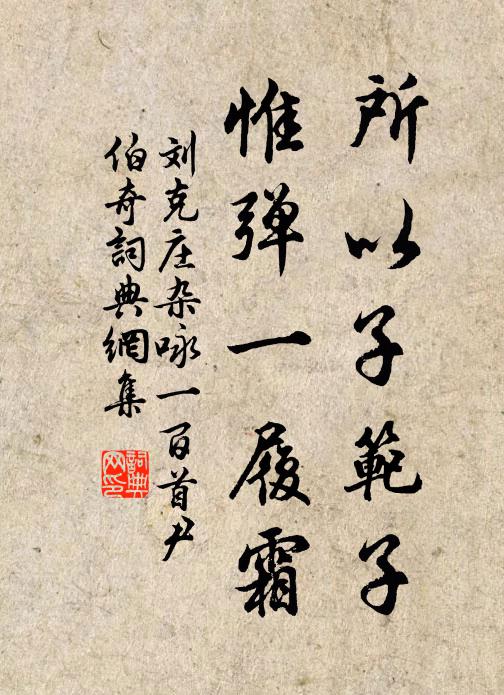 所以子範子
惟弹一履霜
刘克庄杂咏一百首尹
伯奇詞典網集
詞典
网印